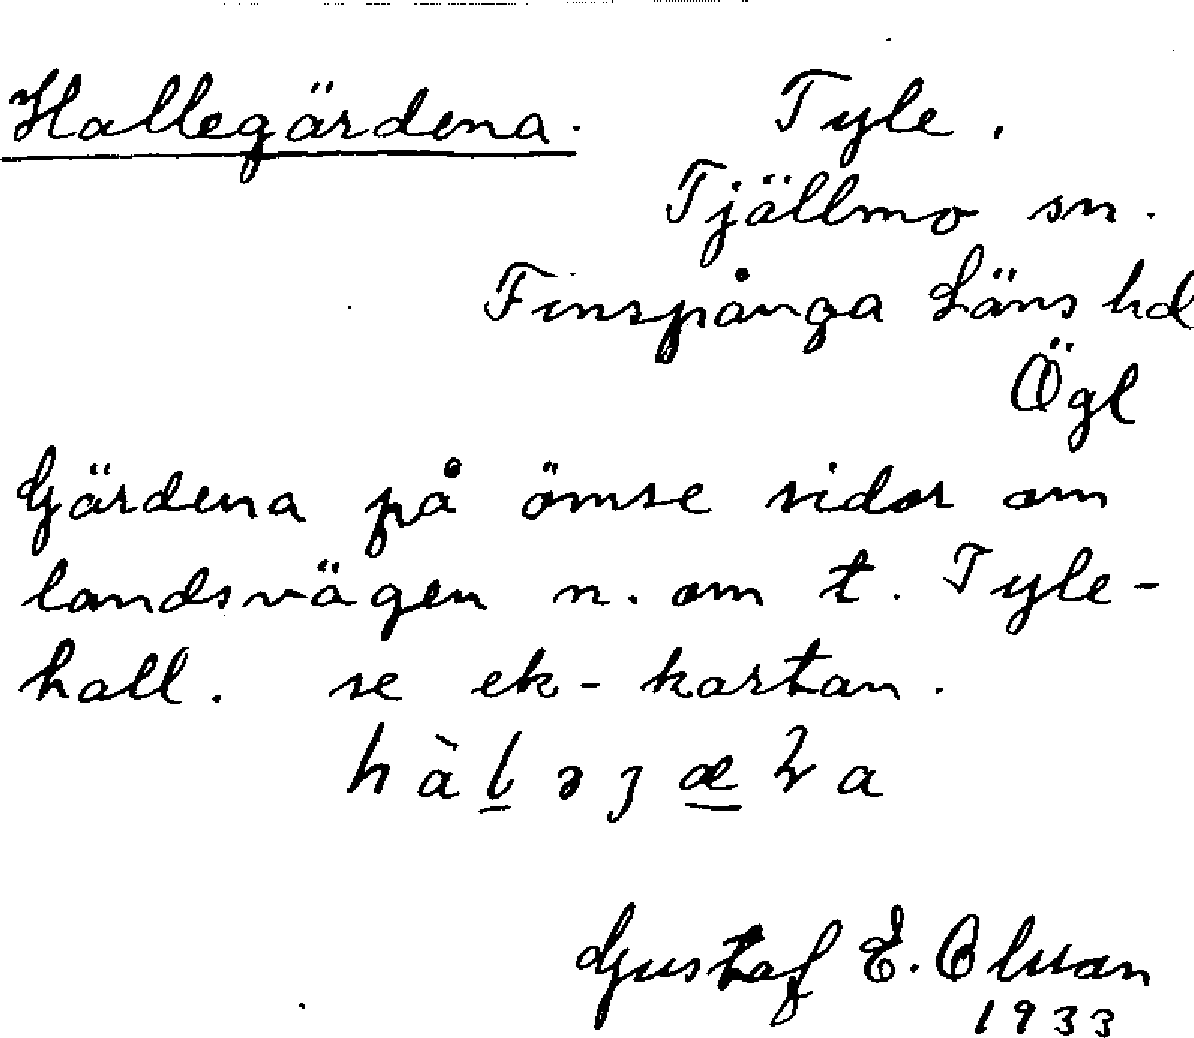 Hallegärdena. Tyle.
Tjällmo sn.
Finspånga Läns hd
Ögl
Gärdena på ömse sidor om
landsvägen n. om t. Tyle-
hall. se ek-kartan.
Gustaf E.
1933